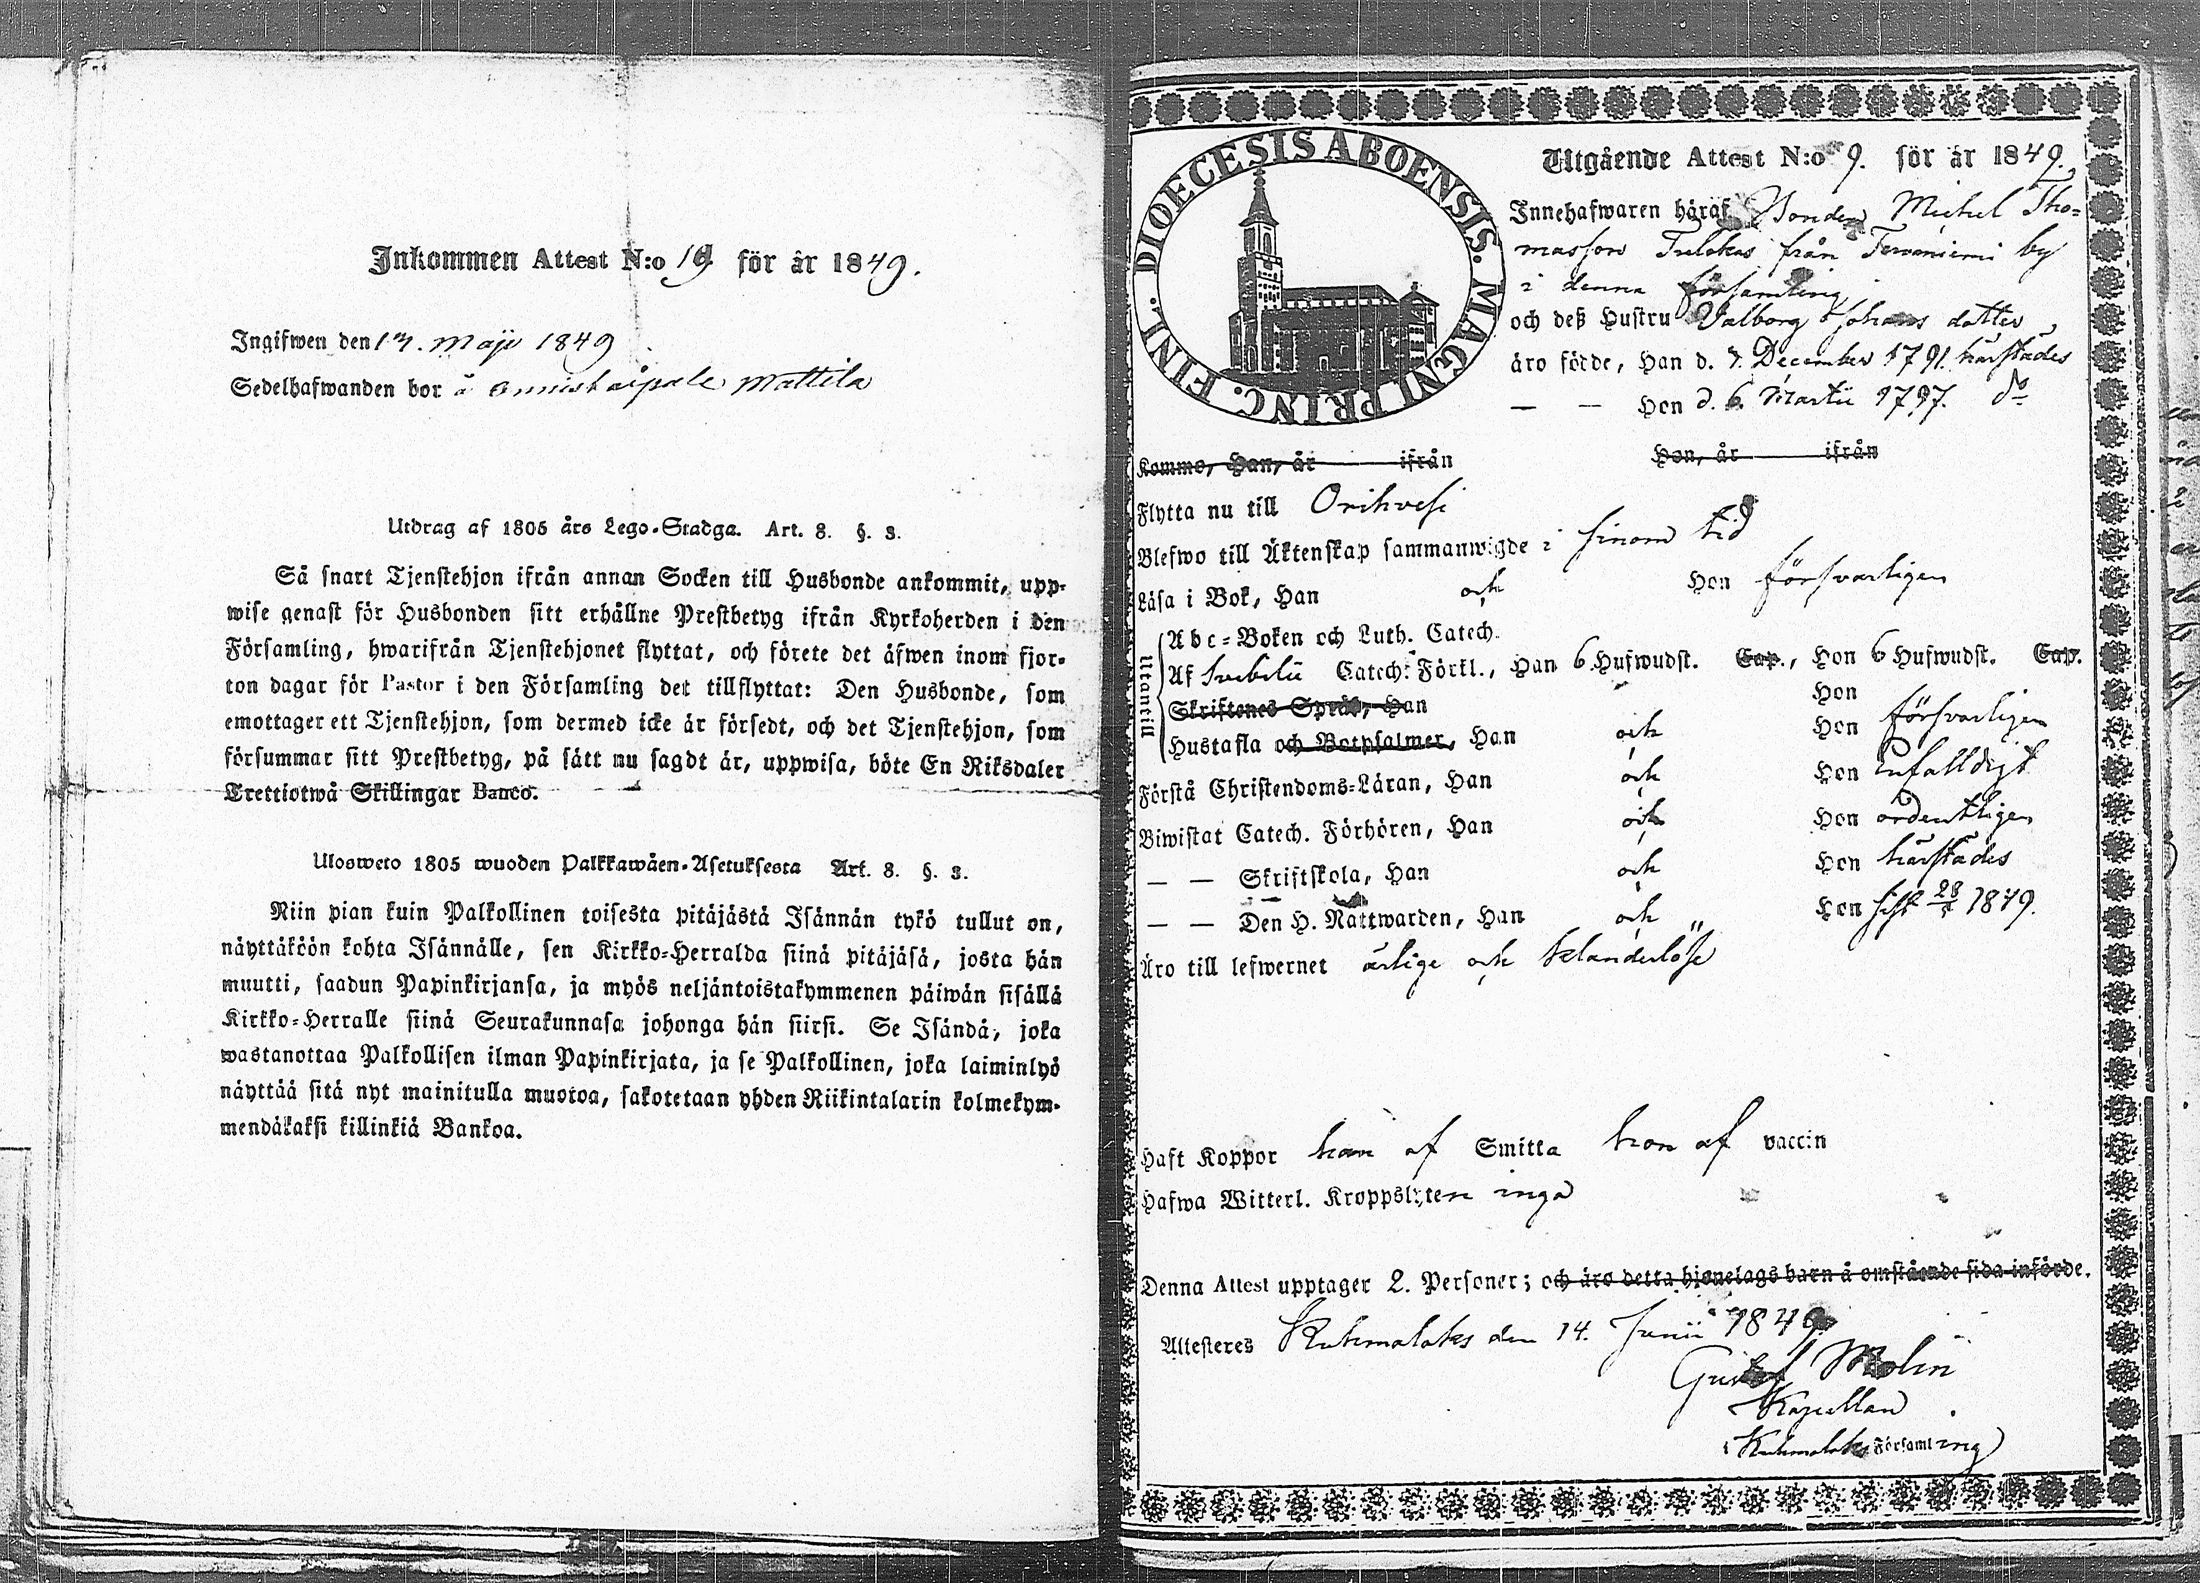 Inkommen Attest N:o 19 för år 1849.
Ingifwen den 17. Maji 1849
Sedelhafwanden bor å Onnistaipale Mattila
Utdrag af 1805 års Lego-Stadga. Art. 8. §. 3.
Så snart Tjenstehjon ifrån annan Socken till Husbonde ankommit, upp-
wise genast för Husbonden sitt erhållne Prestbetyg ifrån Kyrkoherden i den
Församling, hwarifrån Tjenstehjonet flyttat, och förete det äfwen inom fjor-
ton dagar för Pastor i den Församling det tillflyttat: Den Husbonde, som
emottager ett Tjenstehjon, som dermed icke är försedt, och det Tjenstehjon, som
försummar sitt Prestbetyg, på sätt nu sagdt är, uppwisa, böte En Riksdaler
Trettiotwå Skillingar Banco.
Ulosweto 1805 wuoden Palkkawäen-Asetuksesta Art. 8. §. 3.
Niin pian kuin Palkollinen toisesta pitäjästä Isännän tykö tullut on,
näyttäköön kohta Isännälle, sen Kirkko-Herralda siinä pitäjäsä, josta hän
muutti, saadun Papinkirjansa, ja myös neljäntoistakymmenen päiwän sisällä
Kirkko-Herralle siinä Seurakunnasa johonga hän siirsi. Se Isändä, joka
wastanottaa Palkollisen ilman Papinkirjata, ja se Palkollinen, joka laiminlyö
näyttää sitä nyt mainitulla muotoa, sakotetaan yhden Riikintalarin kolmekym-
mendäkaksi killinkiä Bankoa.
DIOECESIS ABOENSIS. MAGNI PRINC. FINL.
Utgående Attest N:o 9. för år 1849.
Innehafwaren häraf Bonden Michel Tho-
masson från by
i denna församling
och deß Hustru Valborg Johans dotter
äro födde, Han d. 7. December 1791. härstädes
— — Hon d. 6. Martii 1797. do
Kommo, Han, år ifrån Hon, år ifrån
Flytta nu till Orihvesi
Blefwo till Äktenskap sammanwigde i sinom tid
Läsa i Bok, Han och Hon försvarligen
Utantill
Abc-Boken och Luth. Catech.
Af Svebilii Catech: Förkl., Han 6 Hufwudst. Cap., Hon 6 Hufwudst. Cap.
Skriftenes Språk, Han Hon
Hustafla och Botpsalmer, Han och Hon försvarligen
Förstå Christendoms-Läran, Han och Hon enfaldigt
Biwistat Catech. Förhören, Han och Hon ordentligen
— — Skriftskola, Han och Hon härstädes
— — Den H. Nattwarden, Han och Hon sist 1849.
Äro till lefwernet ärlige och klanderlöse
Haft Koppor han af Smitta hon af vaccin
Hafwa Witterl. Kroppslyten inga
Denna Attest upptager 2. Personer; och äro detta hjonelags barn å omstående sida införde.
Attesteres Kuhmalaks den 14. Junii 1849
Gustaf Molin
Kapellan
i Kuhmalaks Församling